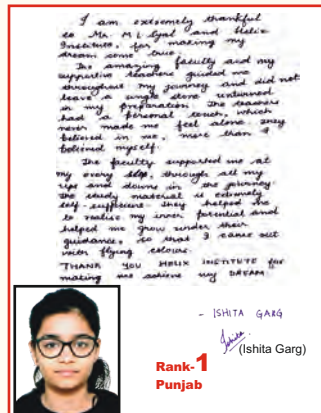 I am extremely thankful
to Mr. M L Syal and Helix
Institute, for making my
dream come true.
The amazing faculty and my
supportive teachers guided me
throughout my journey and did not
leave a single stone unturned
in my preparation. The teachers
had a personal touch, which
never made me feel alone. They
believed in me, more than I
believed myself.
The faculty supported me at
my every step, through all my
ups and downs in the journey.
The study material is extremely
self-sufficient. They helped me
to realise my inner potential and
helped me grow under their
guidance, so that I came out
with flying colours.
THANK YOU HELIX INSTITUTE for
making me achieve my DREAM.
- ISHITA GARG
Ishita
(Ishita Garg)
Rank-1
Punjab